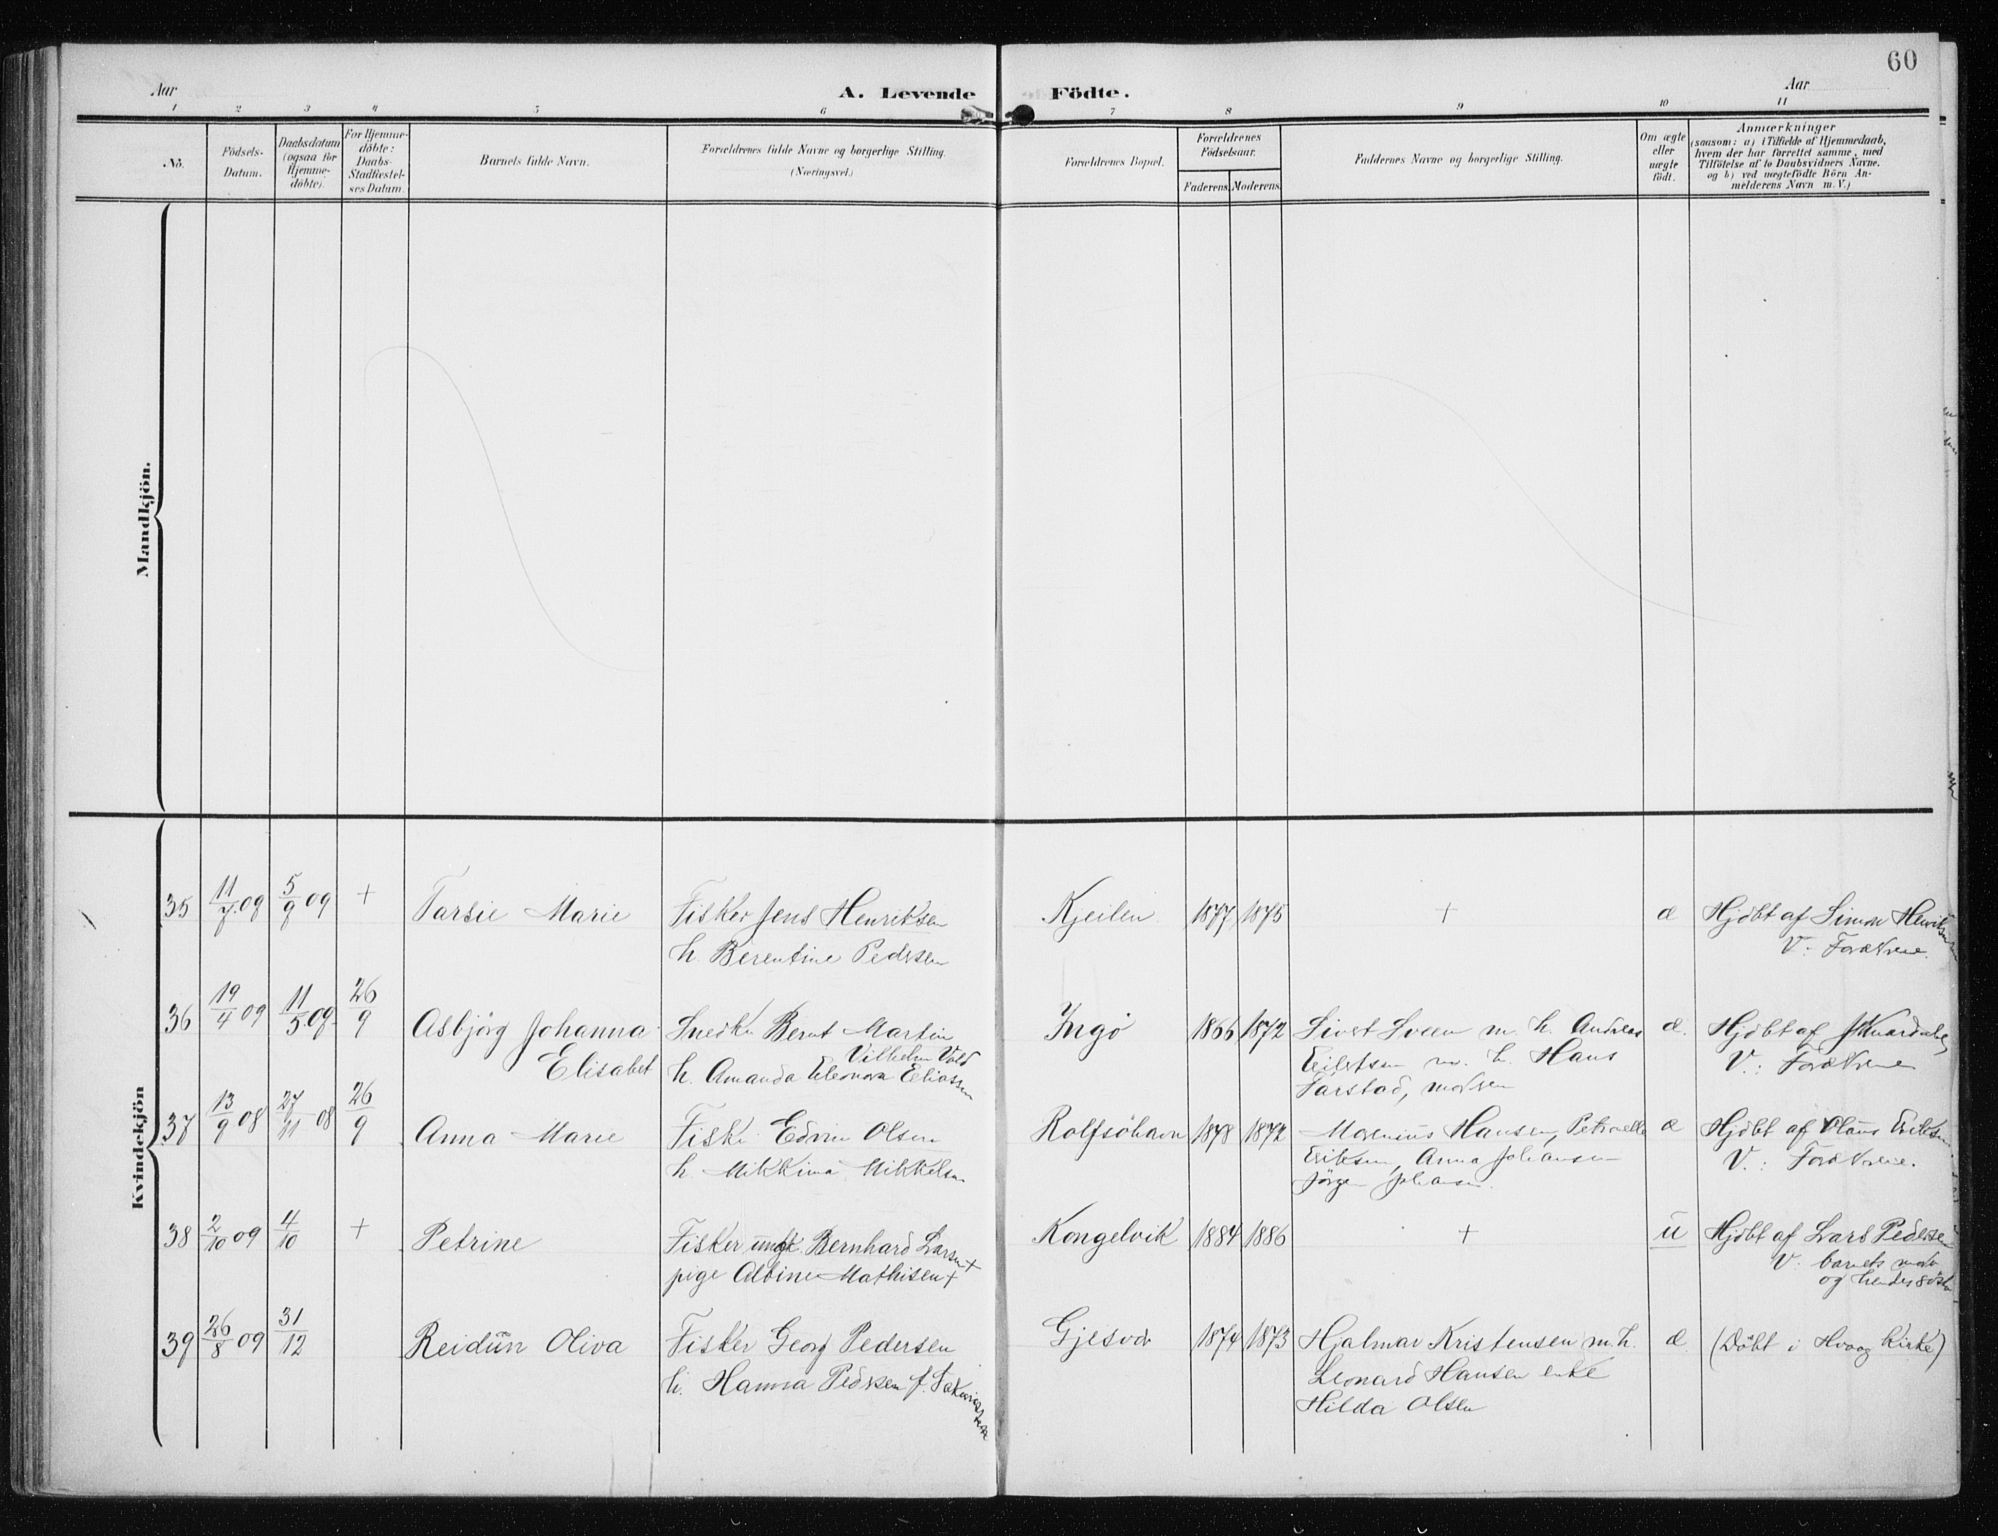 60
Aar
A. Levende Födte.
Aar
1 2 3 4 5 6 7 8 9 10 11
No.
Födsels-Datum.
Daabsdatum (ogsaa for Hjemme-döbte).
For Hjemme-döbte: Daabs-Stadfæstel-ses Datum.
Barnets fulde Navn.
Forældrenes fulde Navne og borgerlige Stilling.
(Næringsvei.)
Forældrenes Bopæl.
Forældrenes Födselsaar.
Faderens. Moderens.
Faddernes Navne og borgerlige Stilling.
Om ægte eller uægte födt.
Anmærkninger
(saasom: a) i Tilfælde af Hjemmedaab,
hvem der har forrettet samme, med
Tilföielse af to Daabsvidners Navne.
og b) ved uægtefödte Börn An-
melderens Navn m. V.)
Mandkjön.
Kvindekjön
35 11/7.09 5/9 09 + Tarsie Marie Fisker Jens Henriksen Kjeilen 1877 1875 + æ Hjdbt af Simon Henriksen
h. Berentine Pedersen V. Forældrene.
36 19/4 09 11/5.09. 26/9 Asbjörg Johanna Snedker Bernt Martin Ingö 1866 1872 Sivert Sveen m. h. Andreas æ. Hjdbt af
Elisabet Vilhelm Vold Eilertsen m. h. Hans V.: Forældrene
h. Amanda Eleonora Eliassen Sarstad, moren
37 13/9 08 27/11 08 26/9 Anna Marie Fisker Edvin Olsen Rolfsöhavn 1878 1872 Morenius Hansen, Petronelle æ Hjdbt af Olaus Eriksen
h. Mikkina Mikkelsen Eriksen, Anna Johansen V.: Forældrene.
Jörgen Johansen.
38 2/10 09 4/10 + Petrine Fisker ungk. Bernhard Larsen + Kongelvik 1884 1886 + u Hjdbt af Lars Pedersen
pige Albine Mathisen + V. barnets mor
og hendes söster
39 26/8 09 31/12 Reidun Oliva Fisker Georg Pedersen Gjesvær 1874 1873 Hjalmar Kristensen m. h. æ. (Döbt i Kirke)
h. Hanna Pedersen f. Leonard Hansen enke
Hilda Olsen